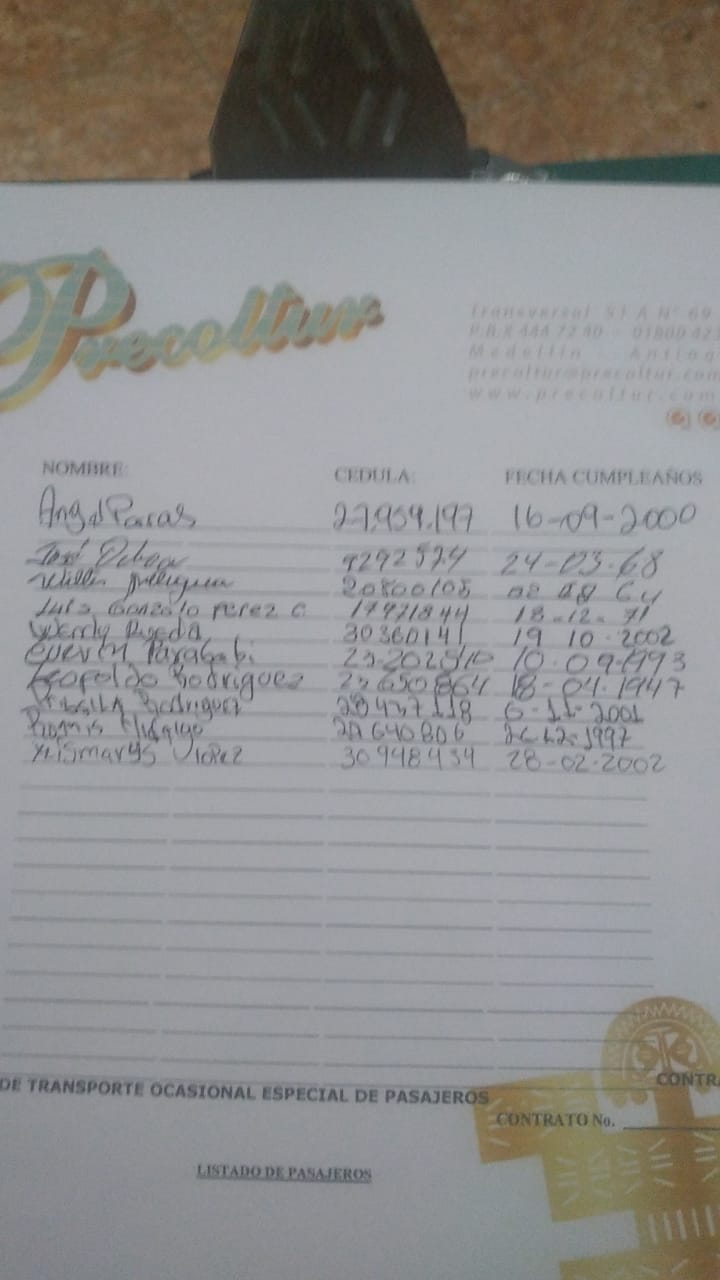 Precoltur
Transversal 51 A N° 69
P.B.X 444 72 40 - 01800 423
Medellín - Antioq
precoltur@precoltur.com
www.precoltur.com
NOMBRE: CEDULA: FECHA CUMPLEAÑOS
Angel 27,959.197 16-09-2000
José Ochoa 9292574 24-03-68
20800108
Luis Gonzalo Perez C 17971844 18-12-71
Wendy 30360141 19 10-2002
10-09-1993
Leopoldo Rodriguez 23,650,864 18-04-1947
Rodriguez 28437118 6-11-2001
Hidalgo 1997
Yrismarys 30948434 28-02-2002
DE TRANSPORTE OCASIONAL ESPECIAL DE PASAJEROS
CONTRA
CONTRATO No.
LISTADO DE PASAJEROS